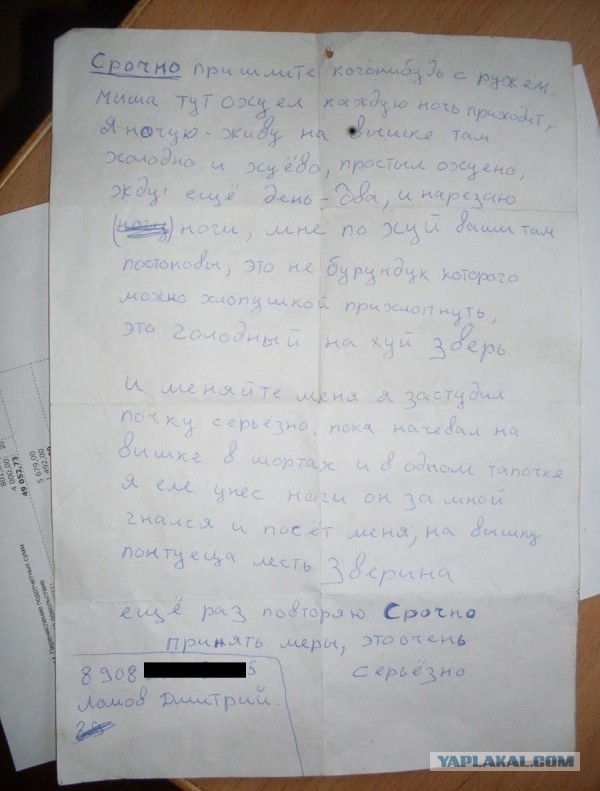 Срочно пришлите когонибудь с ружём.
миша тут охуел каждую ночь приходит,
Я ночую - живу на вышке там
холодно и хуёво, простыл охуено,
жду ещё день - два, и нарезаю
ноги, мне по хуй ваши там
постоновы, это не бурундук которого
можно хлопушкой прихлопнуть,
это голодный на хуй Зверь.
и меняйте меня я застудил
почку серьёзно, пока начевал на
вышке в шортах и в одном тапочке
я еле унёс ноги он за мной
гнался и посёт меня, на вышку
понтуеца лесть Зверина
ещё раз повторяю Срочно
принять меры, это очень
серьёзно
8908 5
Ломов Дмитрий.
49 052,73
4 000,00
5 679,00
YAPLAKAL.COM